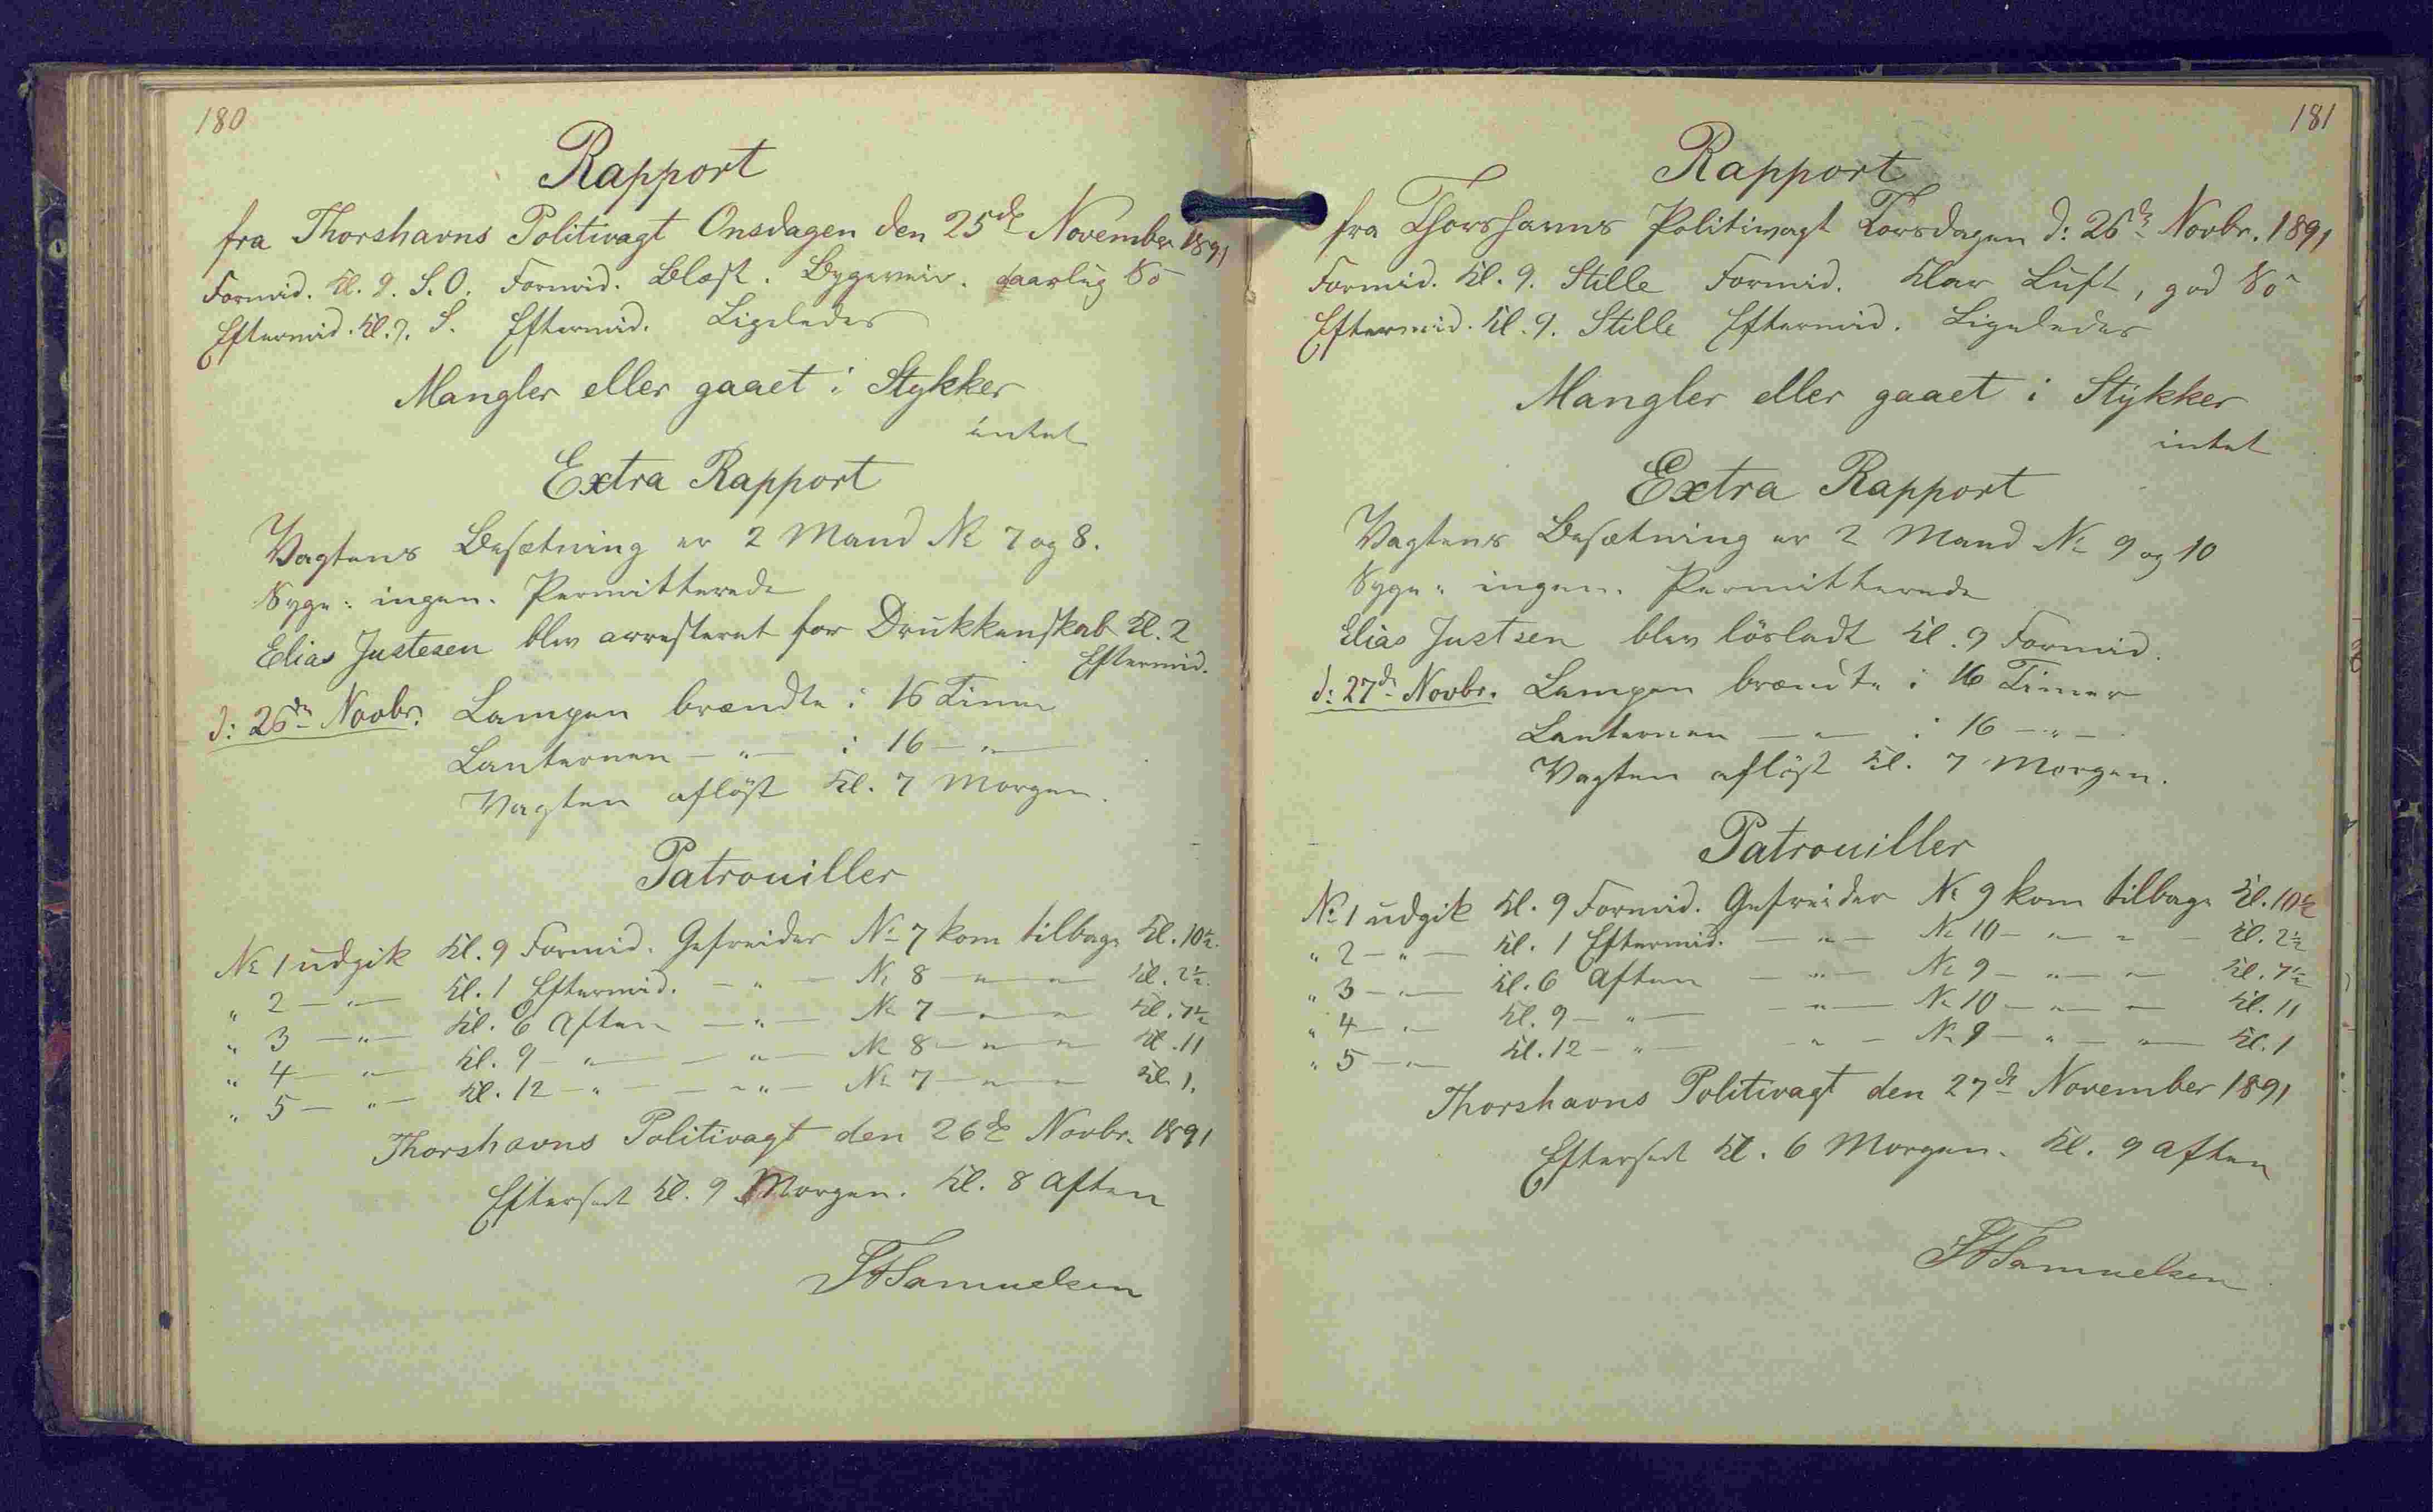 180
Rapport
fra Thorshavns Politivagt Onsdagen den 25de November 1891
Formid. Kl. 9. S.O. Formid. Blæst. Bygeveir. daarlig Sö
Eftermid. Kl. 9. S. Eftermid. Ligeledes
Mangler eller gaaet i Stykker
intet
Extra Rapport
Vagtens Besætning er 2 Mand No 7 og 8.
Syge: ingen. Permitterede
Elias Justesen blev arresteret for Drukkenskab Kl. 2
Eftermid.
d: 26de Novbr. Lampen brændte i 16 Timer
Lanternen — " — i 16 — " —
Vagten aflöst Kl. 7 Morgen.
Patrouiller
No 1 udgik Kl. 9 Formid. Gefreider No 7 kom tilbage Kl. 10½.
" 2 — " — Kl. 1 Eftermid. — " — No 8 — " — " — Kl. 2½.
" 3 — " — Kl. 6 Aften — " — No 7 — " — " — Kl. 7½
" 4 — " — Kl. 9 — " — — " — No 8 — " — " — Kl. 11
" 5 — " — Kl. 12 — " — — " — No 7 — " — " — Kl. 1.
Thorshavns Politivagt den 26de Novbr. 1891
Efterset Kl. 9 Morgen. Kl. 8 Aften
Samuelsen
181
Rapport
fra Thorshavns Politivagt Torsdagen d: 26de Novbr. 1891
Formid. Kl. 9. Stille Formid. Klar Luft, god Sö
Eftermid. Kl. 9. Stille Eftermid. Ligeledes
Mangler eller gaaet i Stykker
intet
Extra Rapport
Vagtens Besætning er 2 Mand No 9 og 10
Syge: ingen. Permitterede
Elias Justsen blev lösladt Kl. 9 Formid.
d: 27de Novbr. Lampen brændte i 16 Timer
Lanternen — " — i 16 — " —
Vagten aflöst Kl. 7 Morgen.
Patrouiller
No 1 udgik Kl. 9 Formid. Gefreider No 9 kom tilbage Kl. 10½
" 2 — " — Kl. 1 Eftermid. — " — No 10 — " — " — Kl. 2½
" 3 — " — Kl. 6 Aften — " — No 9 — " — " — Kl. 7½
" 4 — " — Kl. 9 — " — — " — No 10 — " — " — Kl. 11
" 5 — " — Kl. 12 — " — — " — No 9 — " — " — Kl. 1
Thorshavns Politivagt den 27de November 1891
Efterset Kl. 6 Morgen. Kl. 9 Aften
Samuelsen